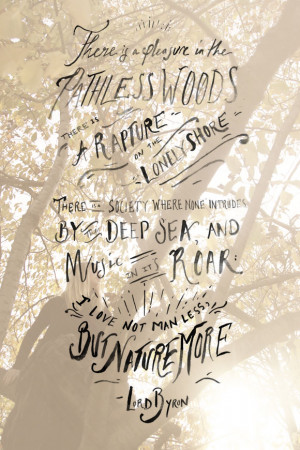 There is a pleasure in the
PATHLESS WOODS
THERE IS
A RAPTURE
ON THE
LONELY SHORE
THERE IS SOCIETY, WHERE NONE INTRUDES
BY THE DEEP SEA, AND
MUSIC IN ITS ROAR:
I LOVE NOT MAN LESS,
BUT NATURE MORE
-LORD BYRON